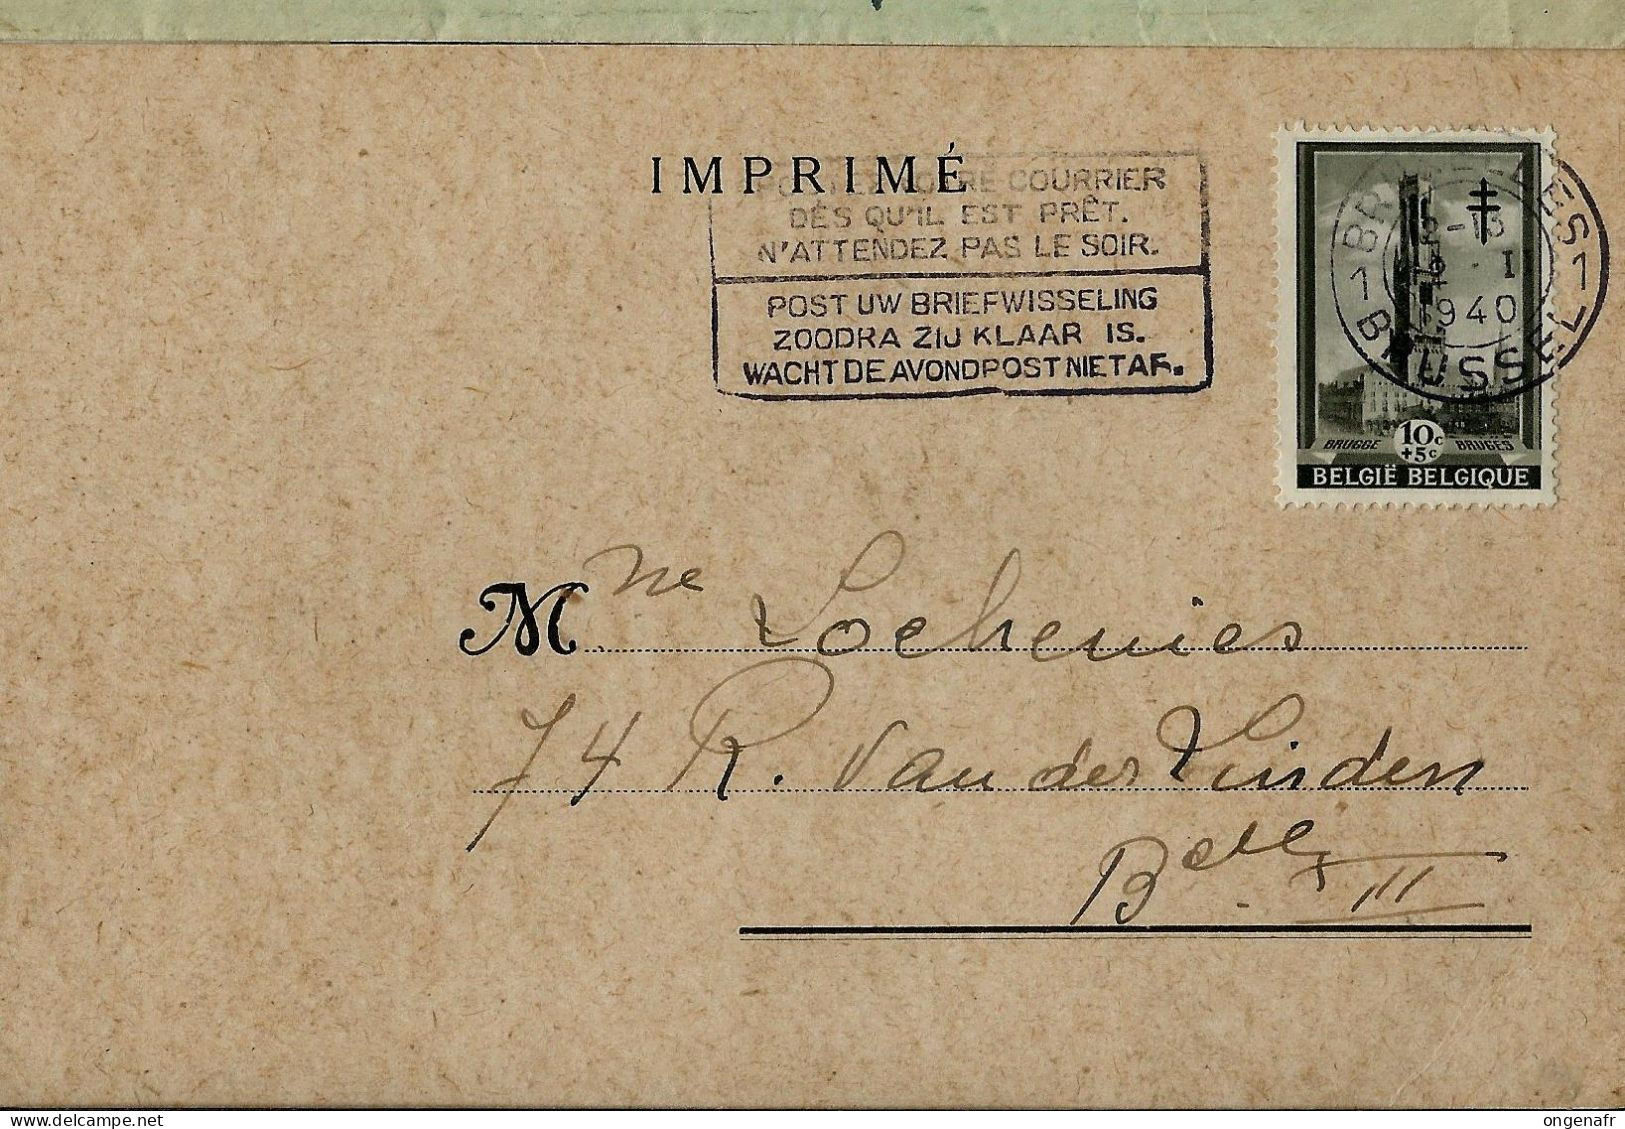 IMPRIMÉ
COURRIER
DÈS QU'IL EST PRÊT.
N'ATTENDEZ PAS LE SOIR.
POST UW BRIEFWISSELING
ZOODRA ZIJ KLAAR IS.
WACHT DE AVONDPOST NIET AF.
1 1
I
1940
BRUSSEL
BRUGGE 10c BRUGES
+5c
BELGIË BELGIQUE
Mme Lochenies
74 R. Van der Linden
Bxelles III
ongenafr